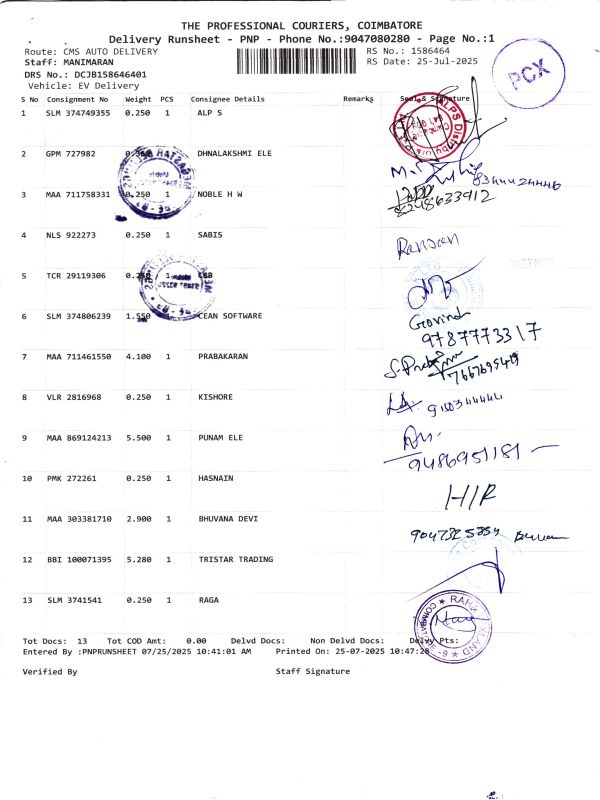 THE PROFESSIONAL COURIERS, COIMBATORE
Delivery Runsheet - PNP - Phone No.:9047080280 - Page No.:1
Route: CMS AUTO DELIVERY RS No.: 1586464
Staff: MANIMARAN RS Date: 25-Jul-2025
DRS No.: DCJB158646401
Vehicle: EV Delivery
PCX
S No Consignment No Weight PCS Consignee Details Remarks Seal & Signature
1 SLM 374749355 0.250 1 ALP S
2 GPM 727982 DHNALAKSHMI ELE
8344424446
3 MAA 711758331 0.250 1 NOBLE H W
8248633912
4 NLS 922273 0.250 1 SABIS
5 TCR 29119306 0.250 1
6 SLM 374806239 1.550 CEAN SOFTWARE
Govind
9787773317
7 MAA 711461550 4.100 1 PRABAKARAN
8 VLR 2816968 0.250 1 KISHORE
9 MAA 869124213 5.500 1 PUNAM ELE
9486951181
10 PMK 272261 0.250 1 HASNAIN
H/R
11 MAA 303381710 2.900 1 BHUVANA DEVI
12 BBI 100071395 5.280 1 TRISTAR TRADING
13 SLM 3741541 0.250 1 RAGA
Tot Docs: 13 Tot COD Amt: 0.00 Delvd Docs: Non Delvd Docs: Delvy Pts:
Entered By :PNPRUNSHEET 07/25/2025 10:41:01 AM Printed On: 25-07-2025 10:47:28
Verified By Staff Signature